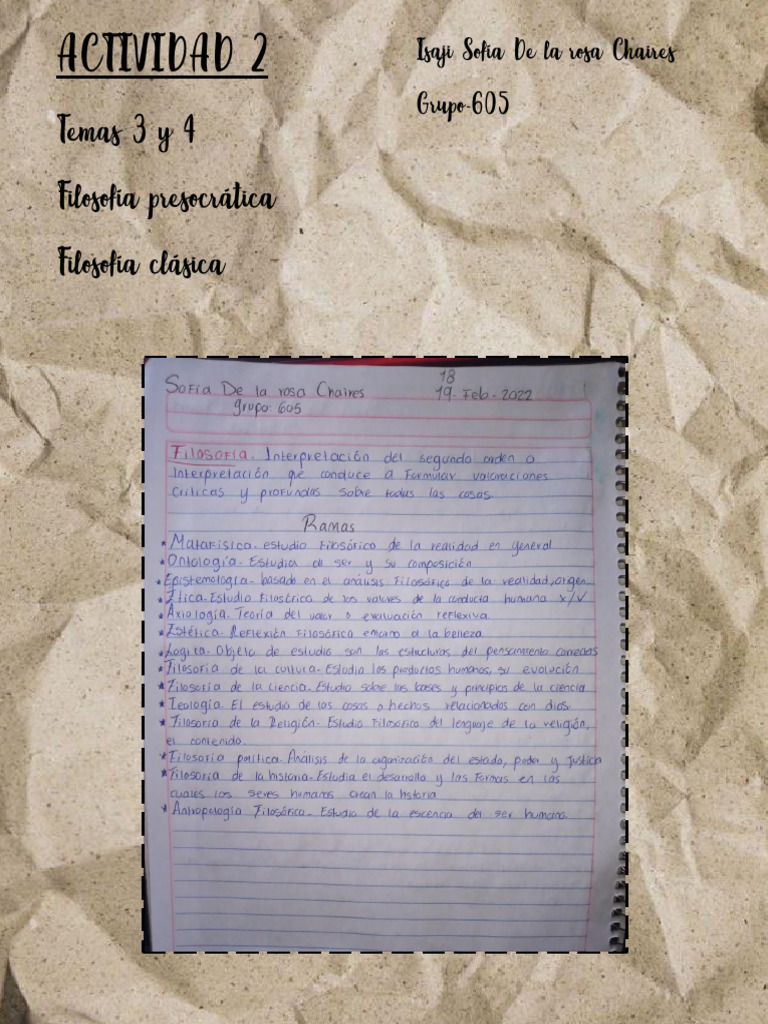 ACTIVIDAD 2
Isaji Sofia De la rosa Chaires
Grupo-605
Temas 3 y 4
Filosofía presocrática
Filosofía clásica
18
Sofía De la rosa Chaires 19-Feb-2022
grupo: 605
Filosofía. Interpretación del segundo orden o
interpretación que conduce a formular valoraciones
críticas y profundas sobre todas las cosas.
Ramas
* Matafísica- estudio filosófico de la realidad en general
* Ontología- Estudia al ser y su composición
* Epistemología- basado en el análisis filosófico de la realidad, origen
* Ética- Estudio filosófico de los valores de la conducta humana x/√
* Axiología- Teoría del valor o evaluación reflexiva.
* Estética- Reflexión filosófica entorno a la belleza
* Logica- Objeto de estudio son las estructuras del pensamiento correctas
* Filosofía de la cultura- Estudia los productos humanos, su evolución
* Filosofía de la ciencia- Estudia sobre las bases y principios de la ciencia
* Teología- El estudio de las cosas o hechos relacionados con dios
* Filosofía de la Religión- Estudio filosófico del lenguaje de la religión,
el contenido.
* Filosofía política- Análisis de la organización del estado, poder y justicia
* Filosofía de la historia- Estudia el desarrollo y las formas en las
cuales los seres humanos crean la historia
* Antropología Filosófica- Estudio de la escencia del ser humano.